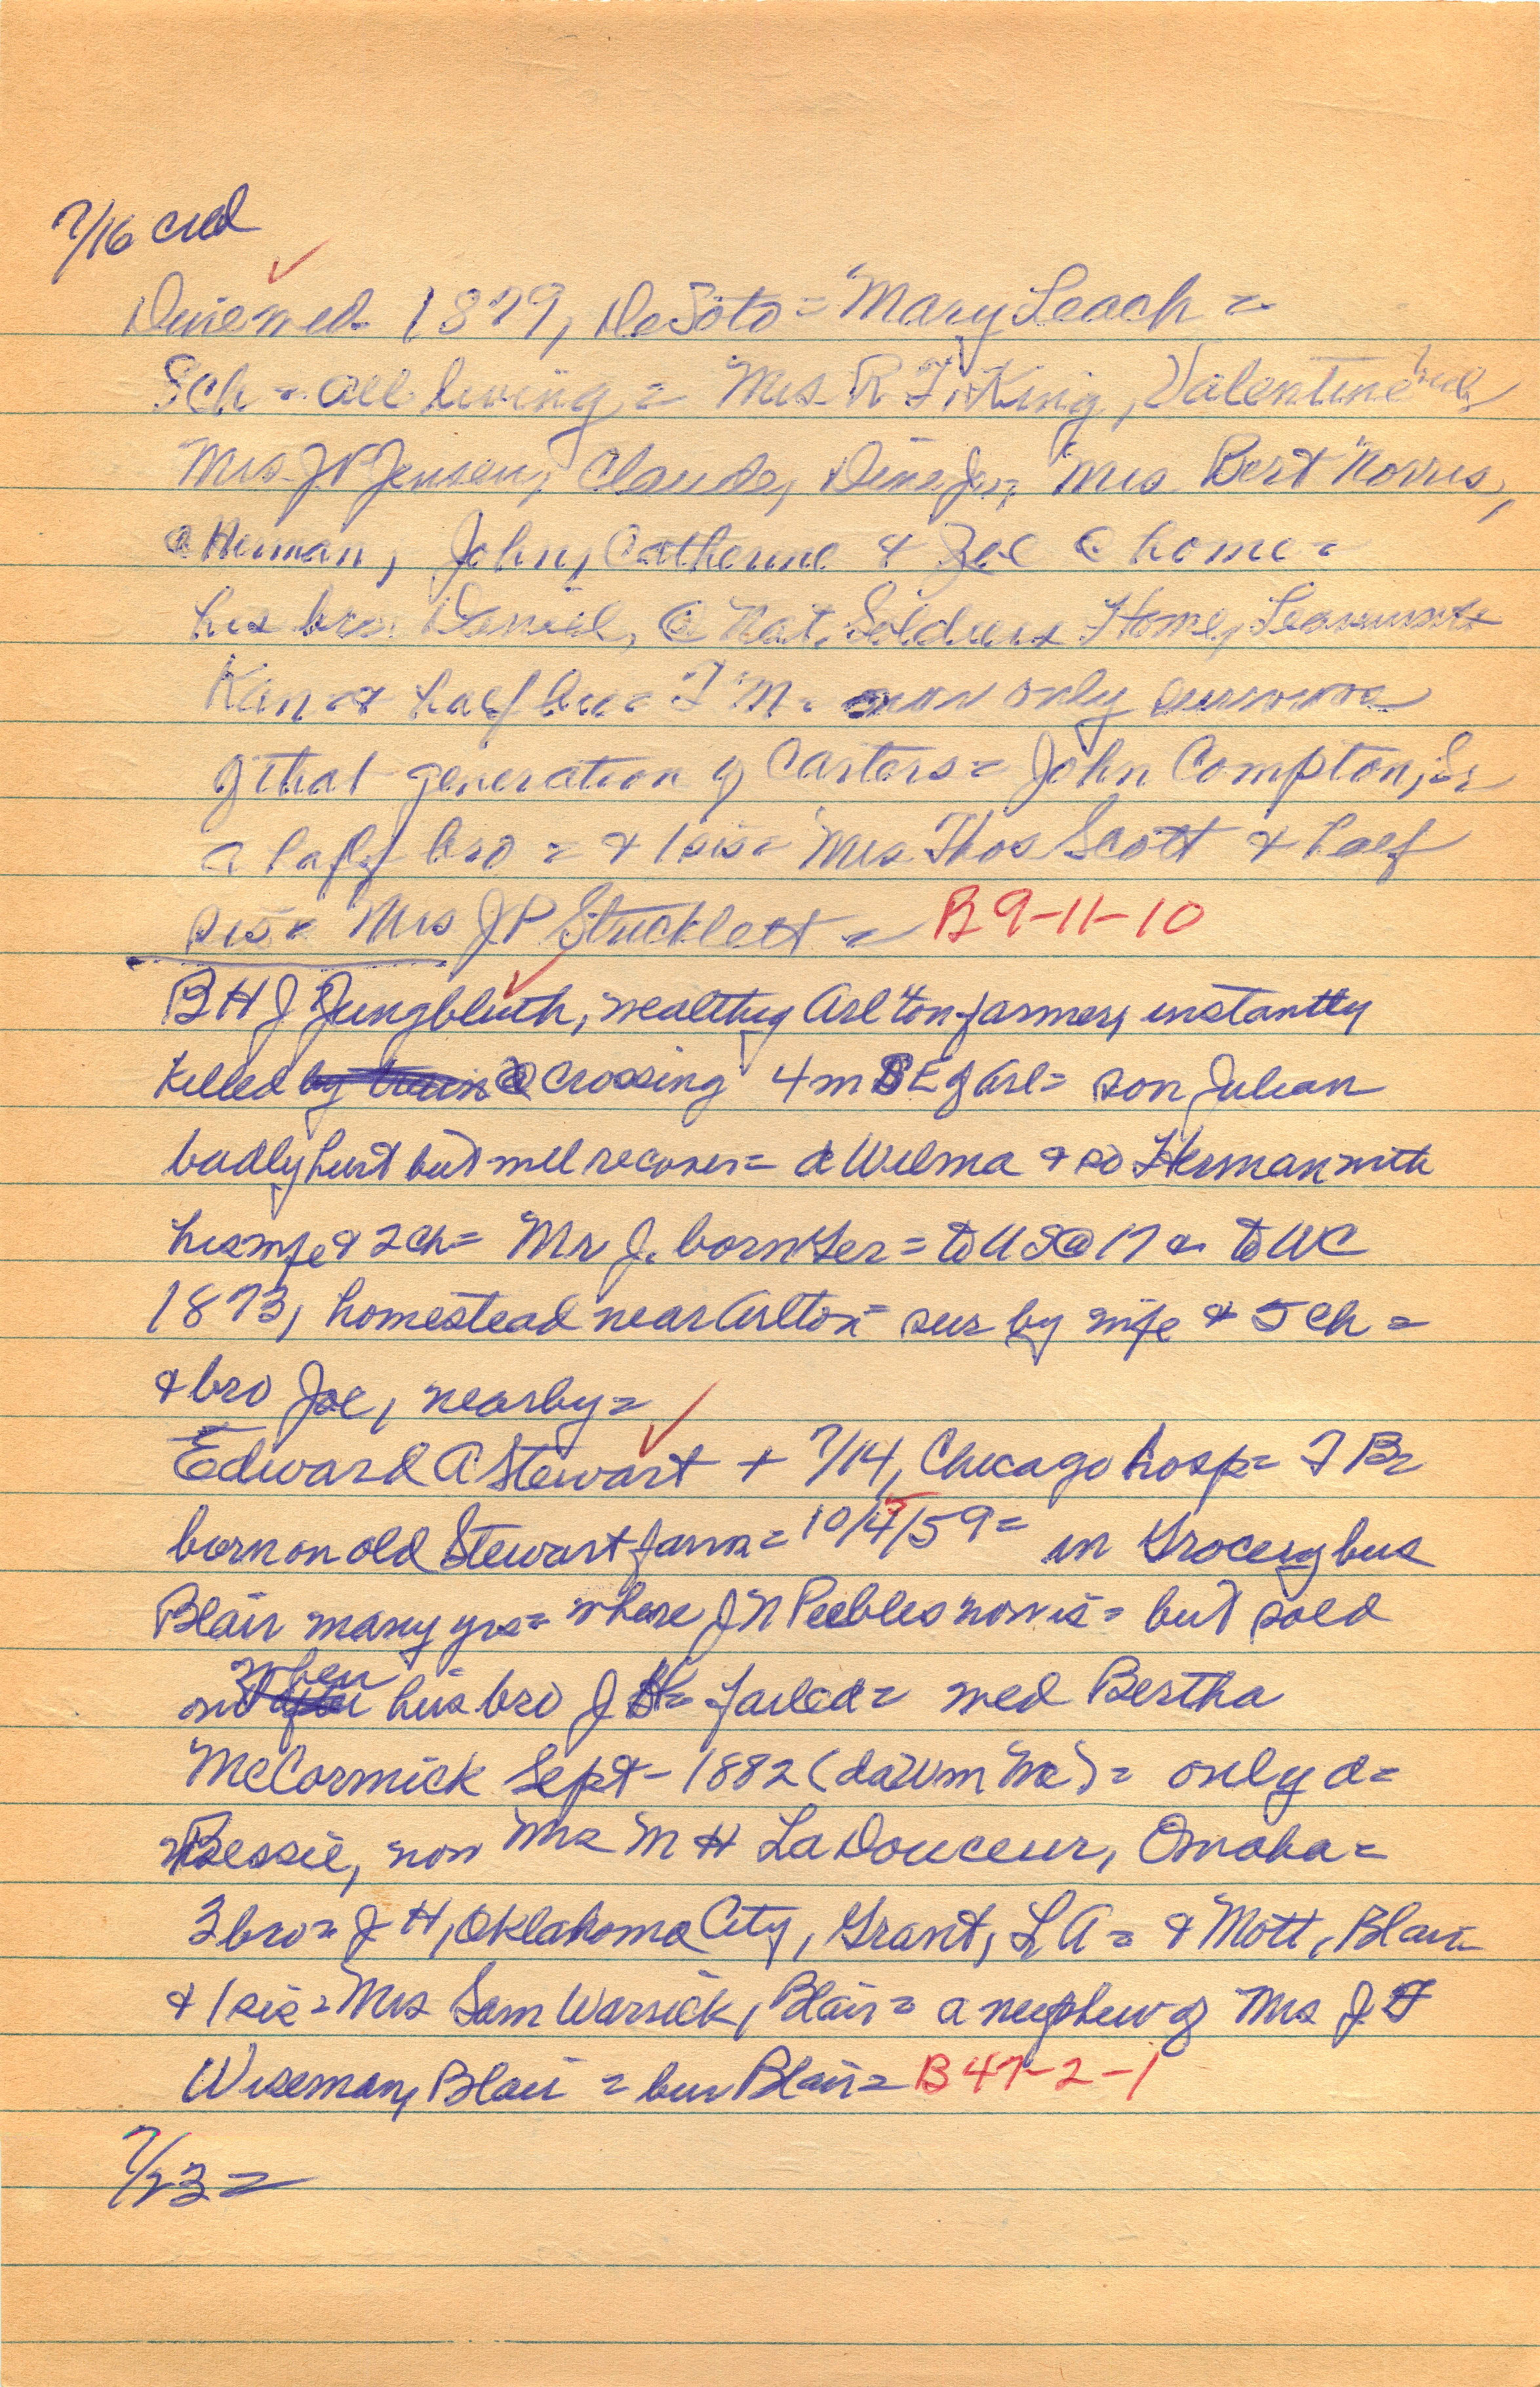 7/16 cted
Dine med 1879, DeSoto = Mary Leach =
8ch = all living = Mrs R F King, Valentine
Mrs J P Jensen, Claude, Dine Jr, Mrs Bert Norris,
@ Herman, John, Catherine & Zoe @ home =
his bro Daniel, @ Nat. Soldiers Home, Leavenworth
Kan = & half bro = T M = now only survivors
of that generation of Carters = John Compton, Sr
a half bro = & 1 sis = Mrs Thos Scott & half
sis = Mrs J P Stricklett = B 9-11-10
B H J Jungbluth, wealthy Arl'ton farmer, instantly
killed by train @ crossing 4 m SE of Arl = son Julian
badly hurt but will recover = d Wilma & so Herman with
his wife & 2 ch = Mr J. born Ger = to US @ 17 = to WC
1873, homestead near Arlton = sur by wife & 5 ch =
& bro Joe, nearby =
Edward A Stewart + 7/14, Chicago hosp = T Br
born on old Stewart farm = 10/4/59 = in Grocery bus
Blair many yrs = where J N Peebles now is = but sold
out when his bro J H = failed = med Bertha
McCormick Sept - 1882 (da Wm Mc) = only d =
Bessie, now Mrs M H LaDouceur, Omaha =
3 bro = J H, Oklahoma City, Grant, L A = & Mott, Blair
& 1 sis = Mrs Sam Warrick, Blair = a nephew of Mrs J F
Wiseman, Blair = bur Blair = B 47-2-1
7/23 =